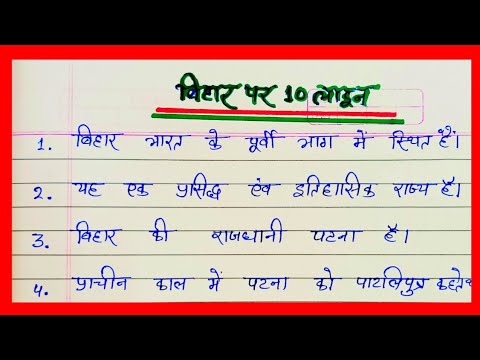 बिहार पर 10 लाइन
1. बिहार भारत के पूर्वी भाग में स्थित हैं।
2. यह एक प्रसिद्ध एंव इतिहासिक राज्य है।
3. बिहार की राजधानी पटना है।
4. प्राचीन काल में पटना को पाटलिपुत्र कहते